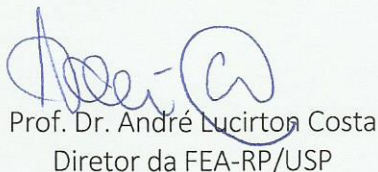 Prof. Dr. André Lucirton Costa
Diretor da FEA-RP/USP